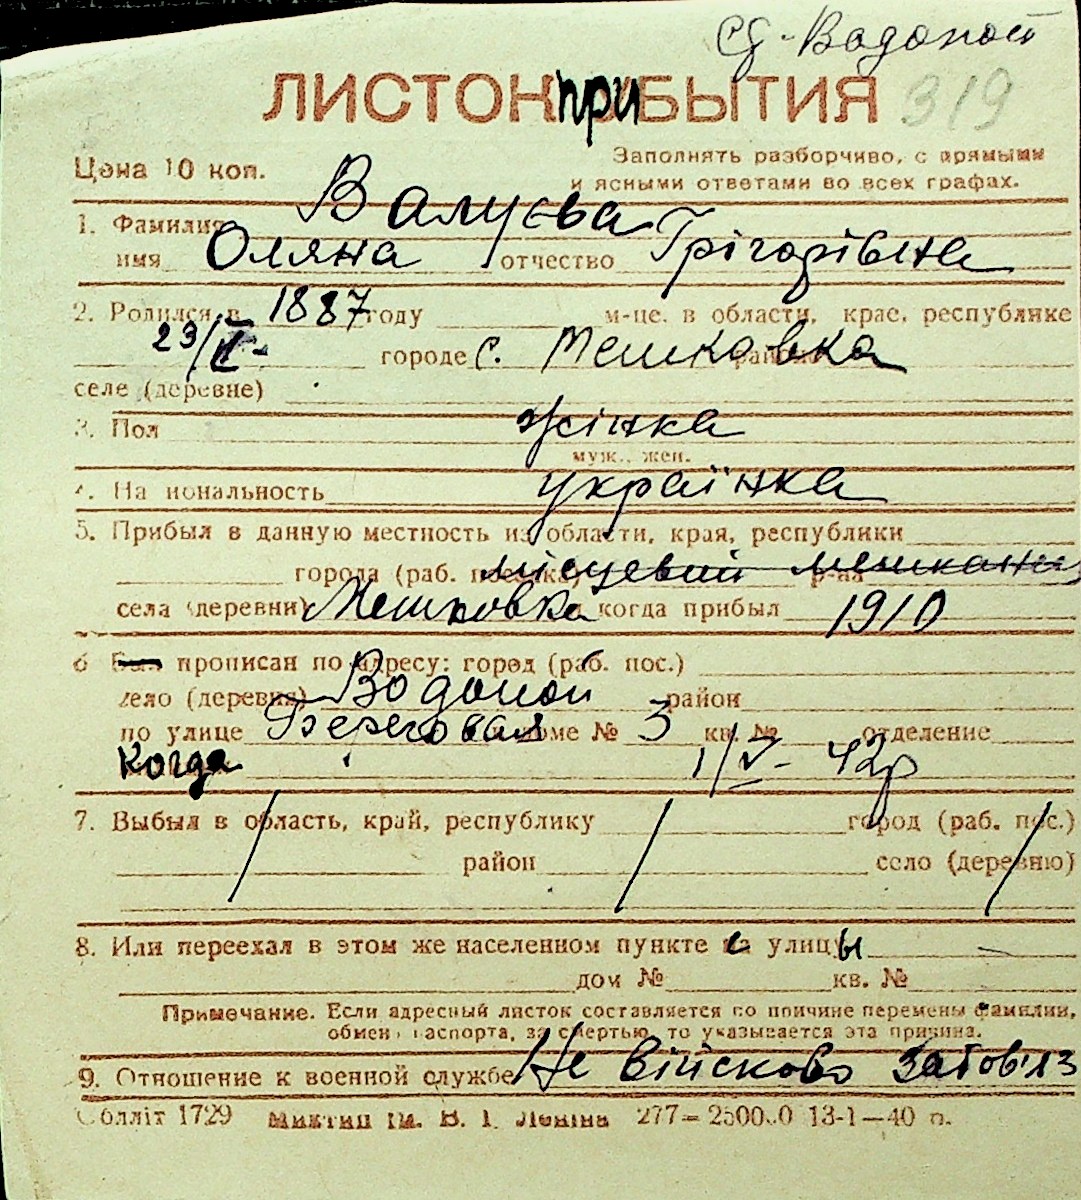 сд. Водопой
ЛИСТОК приБЫТИЯ 319
Цена 10 коп.
Заполнять разборчиво, с прямыми
и ясными ответами во всех графах.
1. Фамилия Валуєва
имя Оляна отчество Грігорівна
2. Родился в 1887 году м-це. в области, крае, республике
23/ городе с. Мешковка
селе (деревне)
3. Пол жінка
муж., жен.
4. Национальность українка
5. Прибыл в данную местность из области, края, республики
города (раб. поселка) місцевий р-на мешканець
села (деревни) Мешковка когда прибыл 1910
6 Был прописан по адресу: город (раб. пос.)
село (деревня) Водопой район
по улице Береговая доме № 3 кв. № отделение
Когда 1/V- 42р
7. Выбыл в область, край, республику город (раб. пос.)
район село (деревню)
8. Или переехал в этом же населенном пункте с улицы
дом № кв. №
Примечание. Если адресный листок составляется по причине перемены фамилии,
обмена паспорта, за смертью, то указывается эта причина.
9. Отношение к военной службе Не військово забов'яз
Облліт 1729 В. І. Леніна 277— 13-1—40 п.